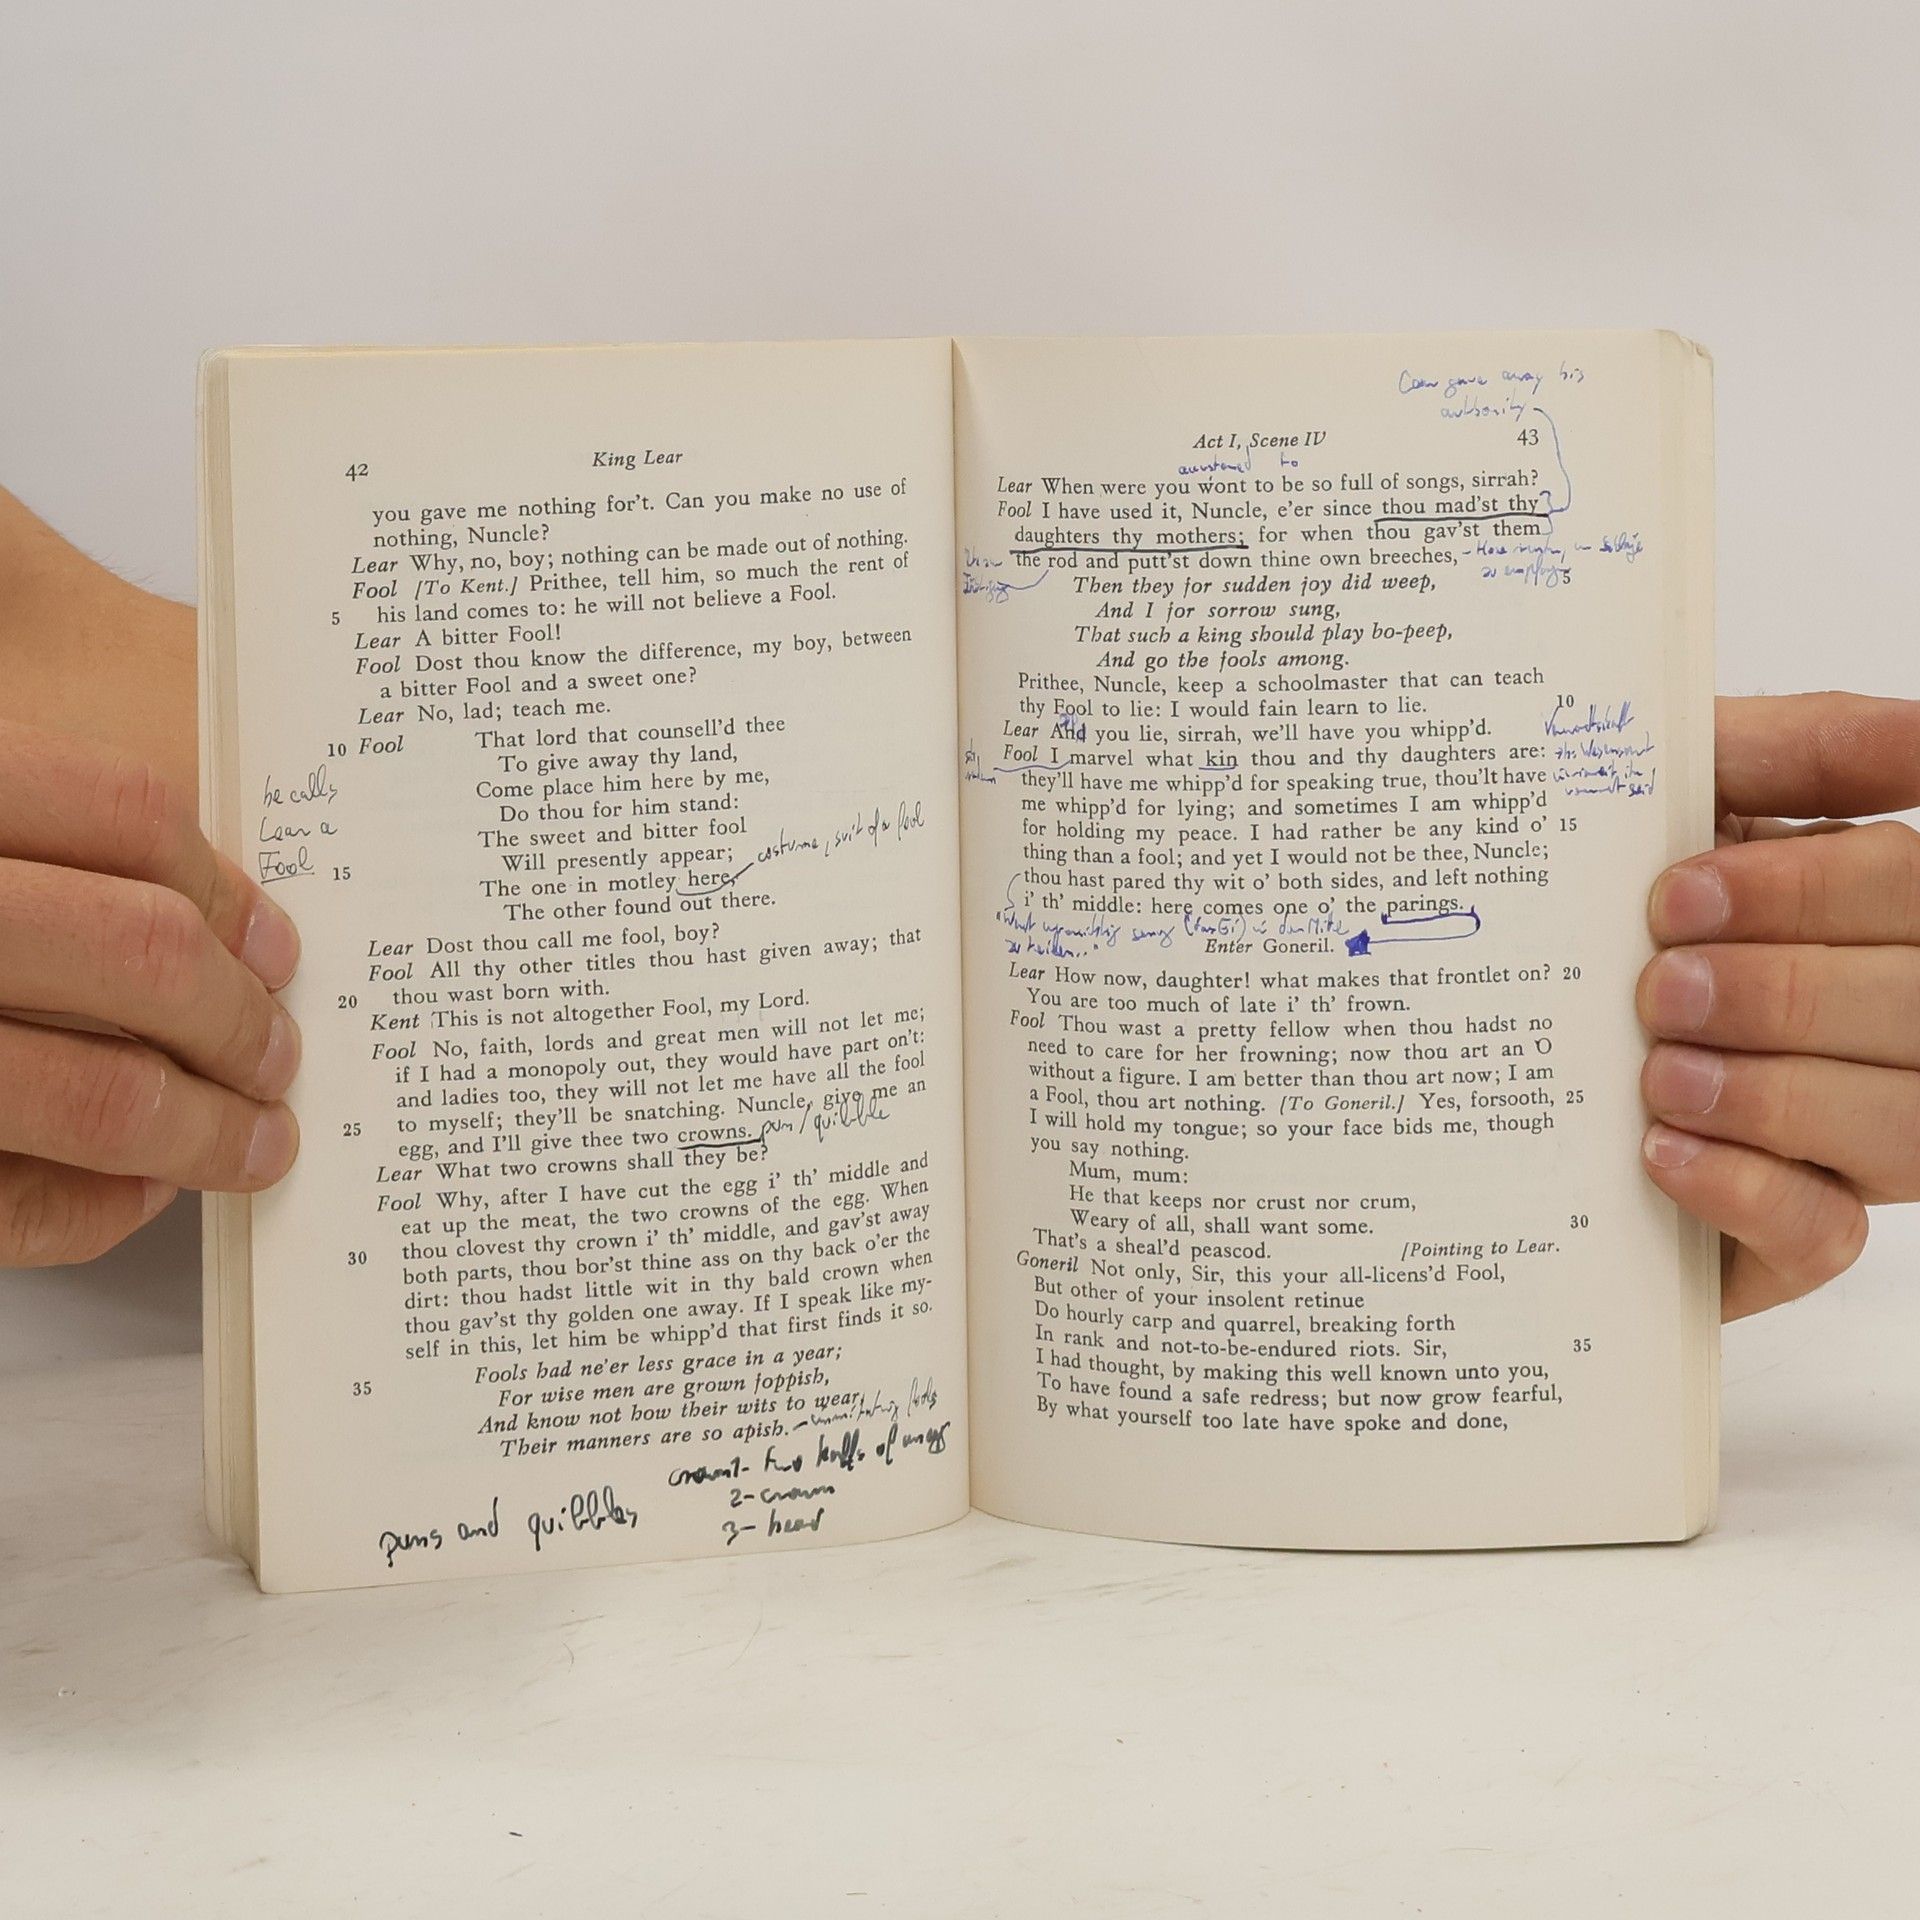 42
King Lear
you gave me nothing for't. Can you make no use of
nothing, Nuncle?
Lear Why, no, boy; nothing can be made out of nothing.
Fool [To Kent.] Prithee, tell him, so much the rent of
5 his land comes to: he will not believe a Fool.
Lear A bitter Fool!
Fool Dost thou know the difference, my boy, between
a bitter Fool and a sweet one?
Lear No, lad; teach me.
10 Fool That lord that counsell'd thee
To give away thy land,
Come place him here by me,
Do thou for him stand:
The sweet and bitter fool
Will presently appear;
15 The one in motley here,
The other found out there.
he calls
Lear a
Fool
costume, suit of a fool
Lear Dost thou call me fool, boy?
Fool All thy other titles thou hast given away; that
20 thou wast born with.
Kent This is not altogether Fool, my Lord.
Fool No, faith, lords and great men will not let me;
if I had a monopoly out, they would have part on't:
and ladies too, they will not let me have all the fool
25 to myself; they'll be snatching. Nuncle, give me an
egg, and I'll give thee two crowns. pun / quibble
Lear What two crowns shall they be?
Fool Why, after I have cut the egg i' th' middle and
eat up the meat, the two crowns of the egg. When
30 thou clovest thy crown i' th' middle, and gav'st away
both parts, thou bor'st thine ass on thy back o'er the
dirt: thou hadst little wit in thy bald crown when
thou gav'st thy golden one away. If I speak like my-
self in this, let him be whipp'd that first finds it so.
35 Fools had ne'er less grace in a year;
For wise men are grown foppish,
And know not how their wits to wear,
Their manners are so apish. - immitating fools
crown 1- two halfs of an egg
2- crown
3- head
puns and quibbles
Lear gave away his
authority
Act I, Scene IV
43
accustomed to
Lear When were you wont to be so full of songs, sirrah?
Fool I have used it, Nuncle, e'er since thou mad'st thy
daughters thy mothers; for when thou gav'st them
the rod and putt'st down thine own breeches,
Then they for sudden joy did weep, 5
And I for sorrow sung,
That such a king should play bo-peep,
And go the fools among.
Prithee, Nuncle, keep a schoolmaster that can teach
thy Fool to lie: I would fain learn to lie. 10
Lear And you lie, sirrah, we'll have you whipp'd.
Fool I marvel what kin thou and thy daughters are:
they'll have me whipp'd for speaking true, thou'lt have
me whipp'd for lying; and sometimes I am whipp'd
for holding my peace. I had rather be any kind o' 15
thing than a fool; and yet I would not be thee, Nuncle;
thou hast pared thy wit o' both sides, and left nothing
i' th' middle: here comes one o' the parings.
Enter Goneril.
Lear How now, daughter! what makes that frontlet on? 20
You are too much of late i' th' frown.
Fool Thou wast a pretty fellow when thou hadst no
need to care for her frowning; now thou art an O
without a figure. I am better than thou art now; I am
a Fool, thou art nothing. [To Goneril.] Yes, forsooth, 25
I will hold my tongue; so your face bids me, though
you say nothing.
Mum, mum:
He that keeps nor crust nor crum,
Weary of all, shall want some. 30
That's a sheal'd peascod. [Pointing to Lear.
Goneril Not only, Sir, this your all-licens'd Fool,
But other of your insolent retinue
Do hourly carp and quarrel, breaking forth
In rank and not-to-be-endured riots. Sir, 35
I had thought, by making this well known unto you,
To have found a safe redress; but now grow fearful,
By what yourself too late have spoke and done,